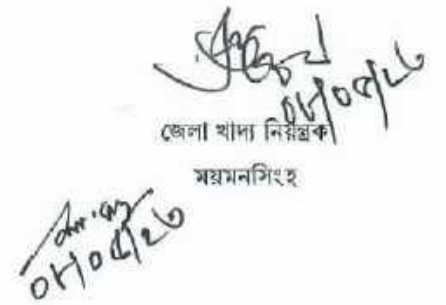 ০৮/০৫/২৩
জেলা খাদ্য নিয়ন্ত্রক
ময়মনসিংহ
০৮/০৫/২৩